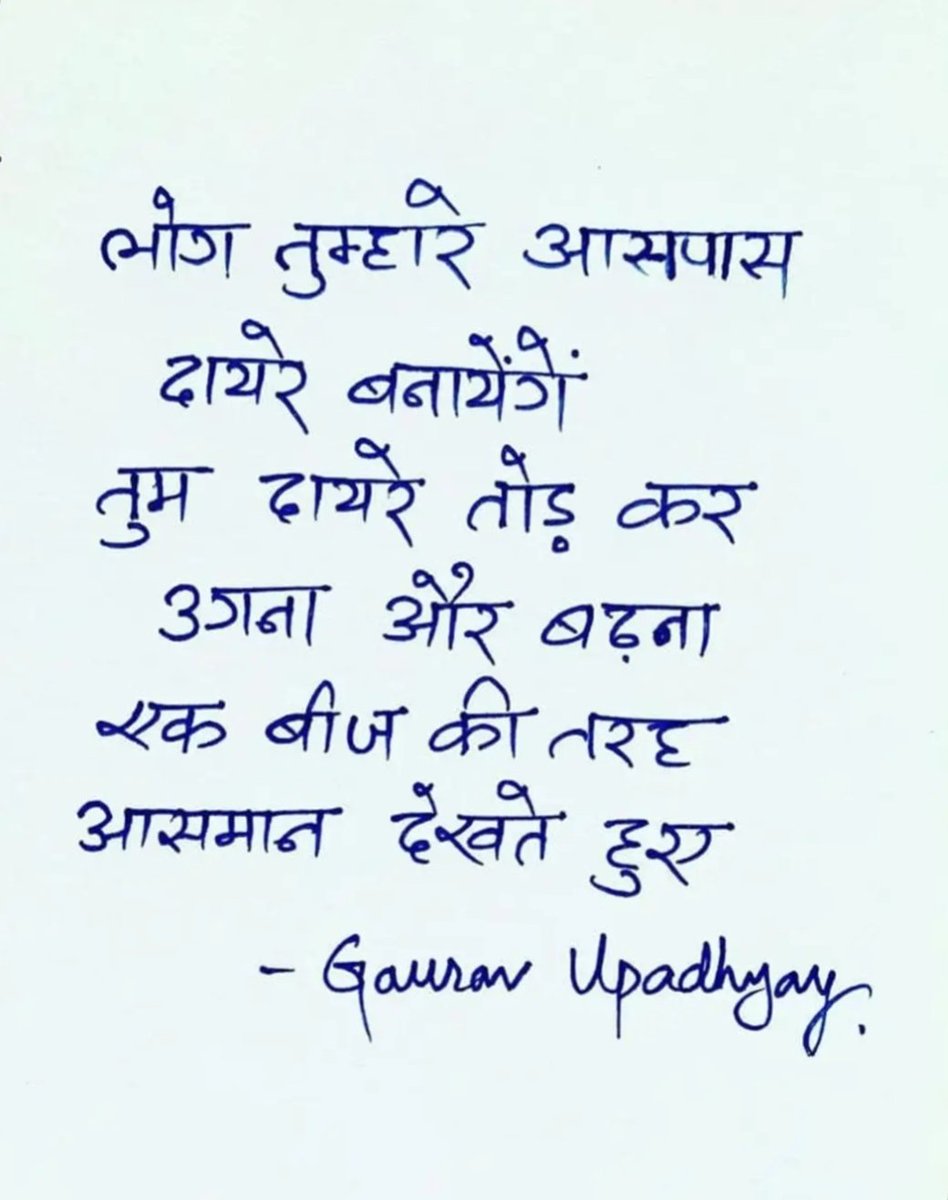 लोग तुम्हारे आसपास
दायरे बनायेंगें
तुम दायरे तोड़ कर
उगना और बढ़ना
एक बीज की तरह
आसमान देखते हुए
- Gaurav Upadhyay.